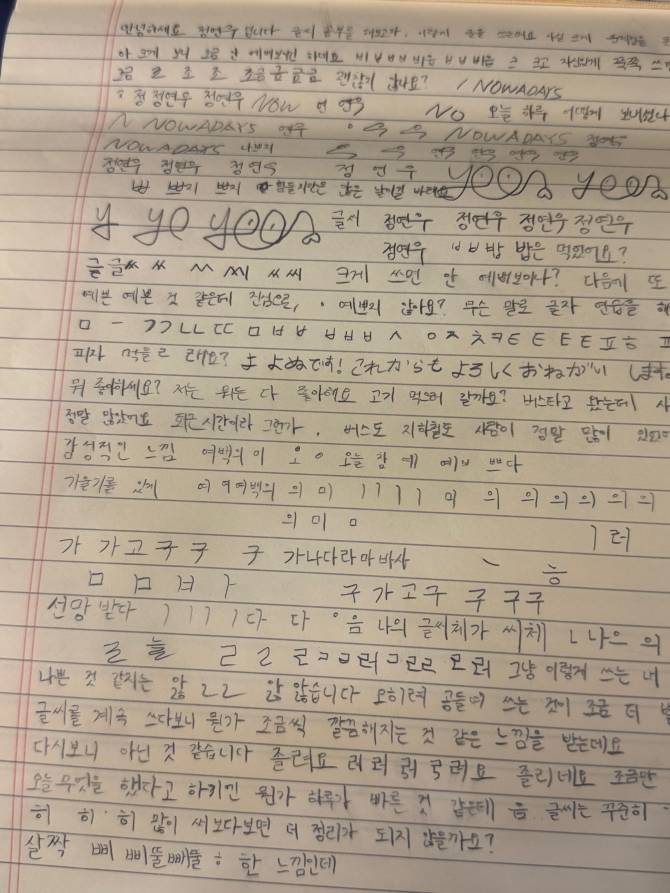 안녕하세요 정연우 입니다 글씨
아 크게 보니 조금 안 예뻐보이긴 하네요 비 ㅂ ㅂ ㅂ ㅂ 비읍 ㅂ ㅂ 비읍 크 크고 자신있게 쭉쭉
조금 ㄹ 조 조 조금 금 금 금 괜찮지 않나요? / NOWADAYS
정 정연우 정연우 NOW 연 연우 NO 오늘 하루 어떻게 보내셨나
N NOWADAYS 연우 우 우 NOWADAYS 정연우
NOWADAYS 나쁘지 우 우 연우 연우 연우 연우
정연우 정연우 정연우 정 연 우 yoo yoo
ㅃ 쁘지 쁘지 힘들지만은 않은 날이길 바래요
y yo yoo 글씨 정연우 정연우 정연우 정연우
정연우 ㅂ ㅂ 밥 밥은 먹었어요?
글 글 ㅆ ㅆ ㅆ ㅆ 씨 크게 쓰면 안 예뻐보이나? 다음에 또
예쁜 예쁜 것 같은데 진심으로, 예쁘지 않아요? 무슨 말로 글자 연습을 해
ㅁ ㅡ ㄱㄱ ㄴㄴ ㄷㄷ ㅁ ㅂ ㅂ ㅂ ㅂ ㅂ ㅅ ㅇ ㅈ ㅊ ㅋ ㅌ ㅌ ㅌ ㅌ ㅍ ㅎ ㅍ
피자 먹을 ㄹ 래요? よ よぬです! これからも よろしく おねがい します
뭐 좋아하세요? 저는 뭐든 다 좋아해요 고기 먹으러 갈까요? 버스타고 왔는데 사
정말 많았어요 퇴근시간이라 그런가. 버스도 지하철도 사람이 정말 많이 있더
감성적인 느낌 여백의 미 오 ㅇ 오늘 참 예 예쁘 쁘다
기울기를 있게 여 여 여백의 의 미 ㅣ ㅣ ㅣ ㅣ 의 의 의 의 의 의 의
의 미 ㅁ ㅣ 러
가 가 고 구 구 구 가나다라마바사 능
ㅁ ㅁ ㅂ ㅏ 구 가 고 구 구 구 구
선망 받다 ㅣ ㅣ ㅣ ㅣ 다 다 음 나의 글씨체가 씨체 ㄴ 나으 의
ㄹ 늘 ㄹ ㄹ ㄹ ㄱ ㄹ ㄹ 그냥 이렇게 쓰는 내
나쁜 것 같지는 않 ㄹ ㄹ 않 않습니다 오히려 공들여 쓰는 것이 조금 더
글씨를 계속 쓰다보니 뭔가 조금씩 깔끔해지는 것 같은 느낌을 받는데요
다시보니 아닌 것 같습니다 졸려요 려 려 려요 졸리네요 조금만
오늘 무엇을 했다고 하기엔 뭔가 하루가 빠른 것 같은데 음 글씨는 꾸준히
히 히 히 많이 써보다보면 더 정리가 되지 않을까요?
살짝 삐 삐뚤빼뚤 ㅎ 한 느낌인데